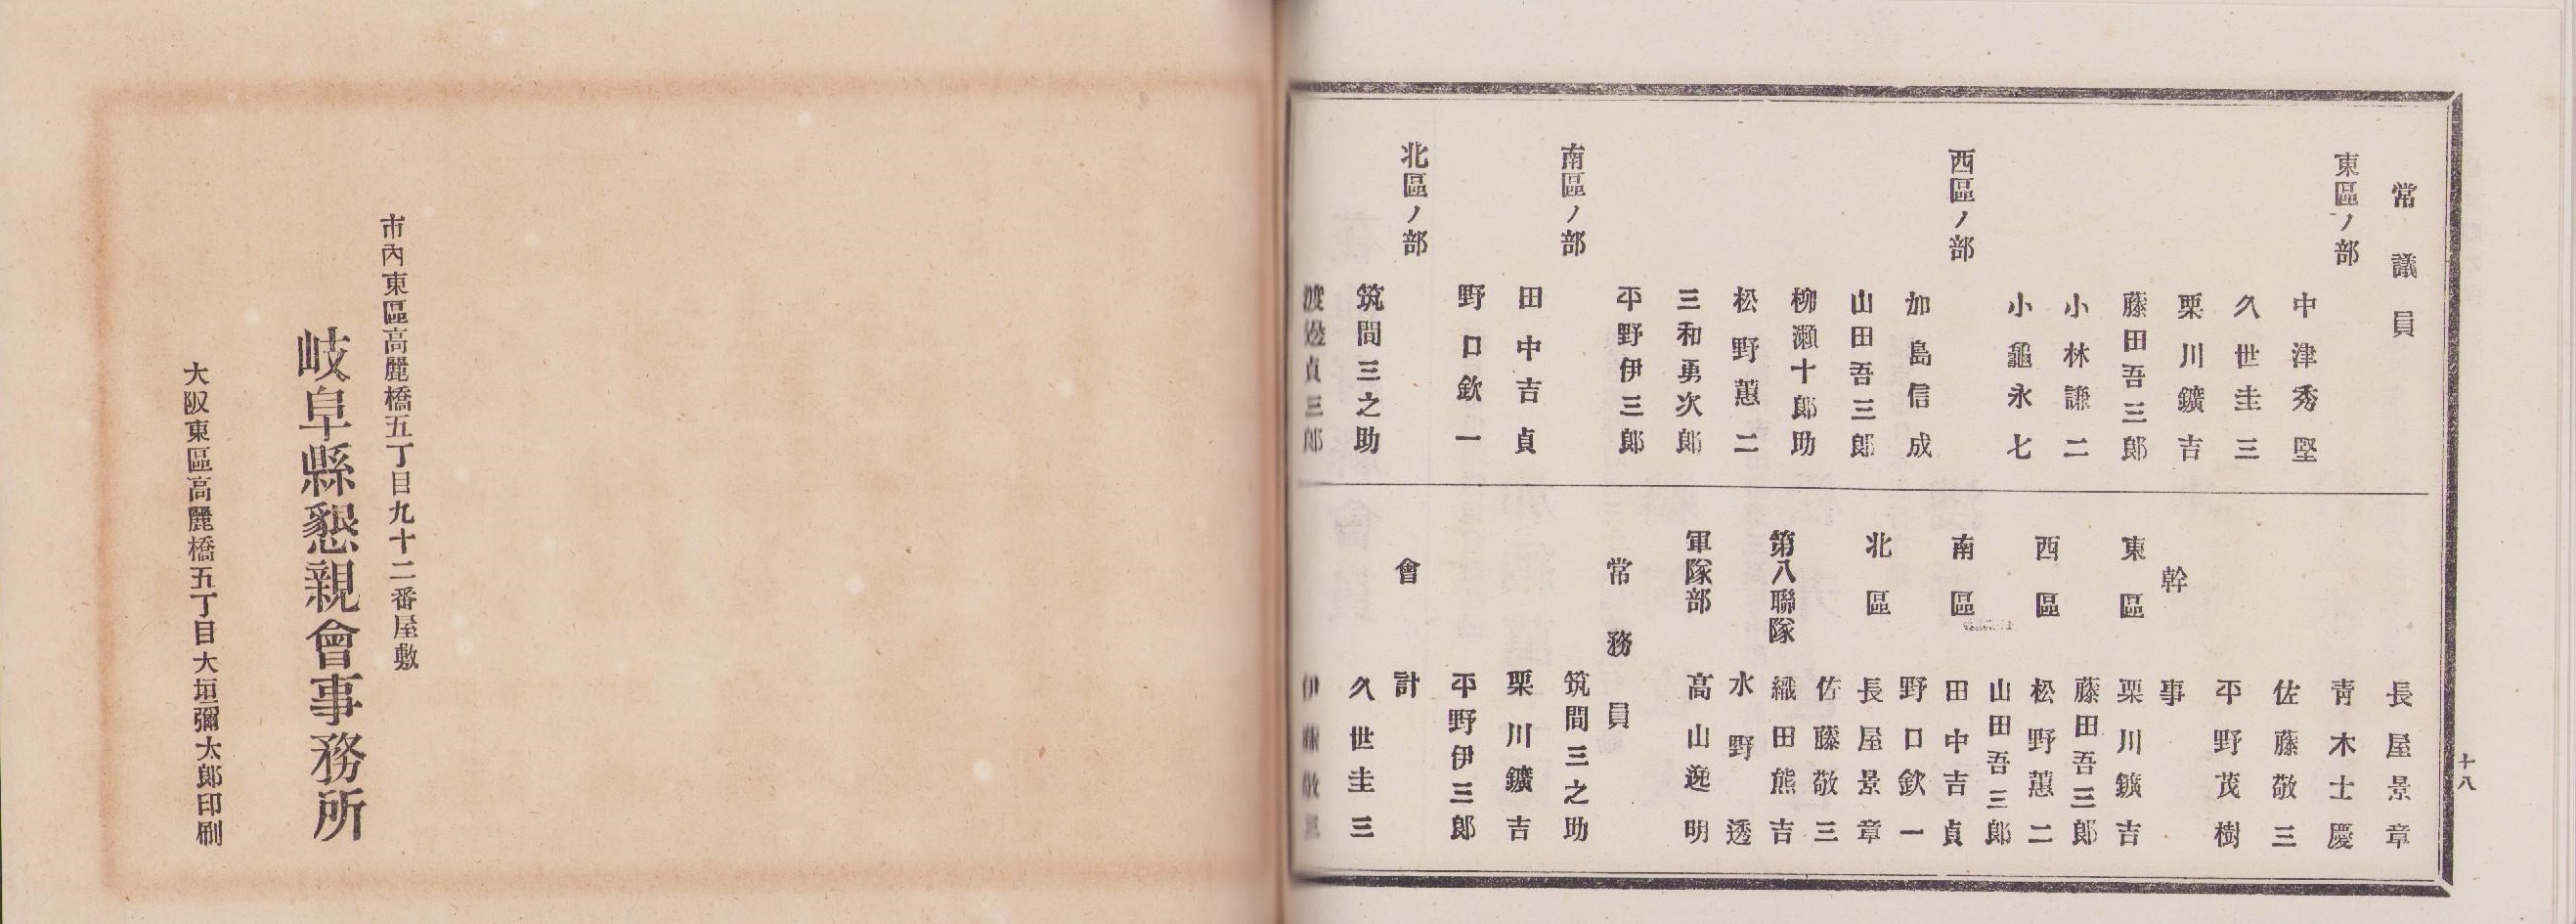 常議員
東區ノ部
中津秀堅
久世圭三
栗川鑛吉
藤田吾三郎
小林謙二
小龜永七
西區ノ部
加島信成
山田吾三郎
柳瀨十郎助
松野蕙二
三和勇次郎
平野伊三郎
南區ノ部
田中吉貞
野口欽一
北區ノ部
筑間三之助
渡邊貞三郎
長屋景章
青木士慶
佐藤敬三
平野茂樹
幹事
東區 栗川鑛吉
藤田吾三郎
西區 松野蕙二
山田吾三郎
南區 田中吉貞
野口欽一
北區 長屋景章
佐藤敬三
第八聯隊 織田熊吉
水野透
軍隊部 高山逸明
常務員
筑間三之助
栗川鑛吉
平野伊三郎
會計
久世圭三
伊藤敬
十八
市內東區高麗橋五丁目九十二番屋敷
岐阜縣懇親會事務所
大阪東區高麗橋五丁目大垣彌太郎印刷